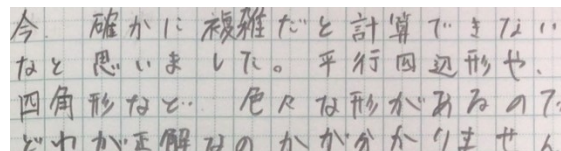 今、確かに複雑だと計算できない
なと思いました。平行四辺形や、
四角形など、色々な形があるので
どれが正解なのかが分かりません